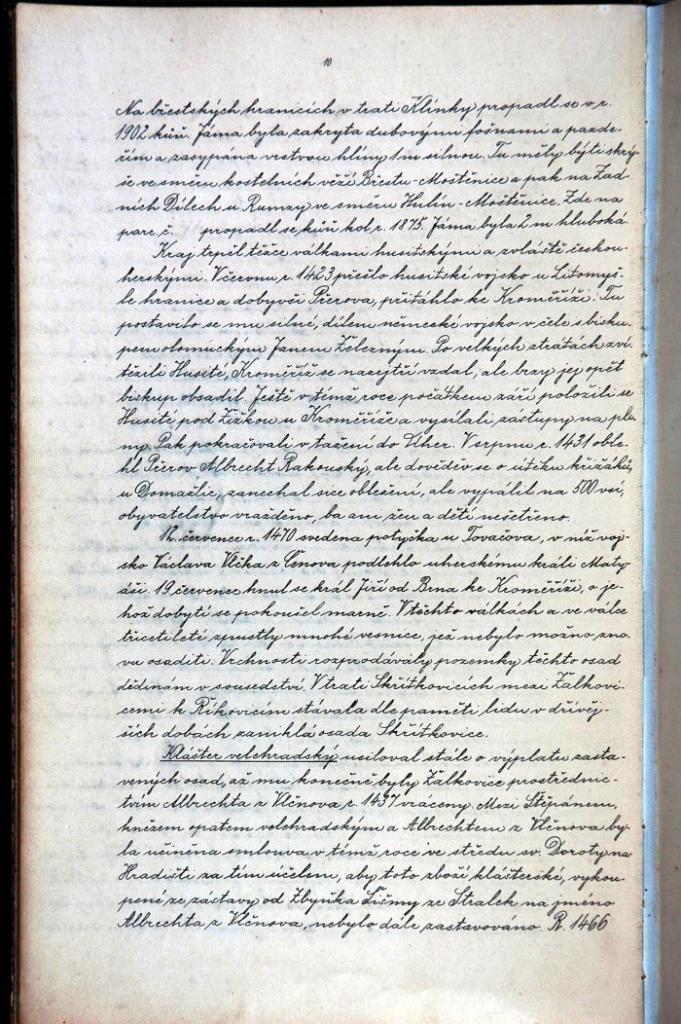 10
Na břestských hranicích v trati Klínky propadl se v r.
1902 kůň. Jáma byla zakryta dubovými fošnami a pazde-
řím a zasypána vrstvou hlíny 1 m silnou. Tu měly býti skrý-
še ve směru kostelních věží Břestu-Moštěnice a pak na Zad-
ních Dílech u Rumzy ve směru Hulín-Moštěnice. Zde na
parc. č. propadl se kůň kol r. 1875. Jáma byla 2 m hluboká
Kraj trpěl těžce válkami husitskými a zvláště českou-
herskými. V červnu r. 1423 přešlo husitské vojsko u Litomyš-
le hranice a dobyvši Přerova, přitáhlo ke Kroměříži. Tu
postavilo se mu silné, dílem německé vojsko v čele s bisku-
pem olomuckým Janem Železným. Po velkých ztrátách zví-
tězili Husité, Kroměříž se nazejtří vzdal, ale brzy jej opět
biskup obsadil. Ještě v témž roce počátkem září položili se
Husité pod Žižkou u Kroměříže a vysílali zástupy na ple-
ny. Pak pokračovali v tažení do Uher. V srpnu r. 1431 oble-
hl Přerov Albrecht Rakouský, ale dověděv se o útěku křižáků,
u Domažlic, zanechal sice obležení, ale vypálil na 500 vsí,
obyvatelstvo vražděno, ba ani žen a dětí nešetřeno.
12. července r. 1470 svedena potyčka u Tovačova, v níž voj-
sko Václava Vlčka z Čenova podlehlo uherskému králi Maty-
áši. 19. července hnul se král Jiří od Brna ke Kroměříži, o je-
hož dobytí se pokoušel marně. V těchto válkách a ve válce
třicetileté zpustly mnohé vesnice, jež nebylo možno zno-
vu osaditi. Vrchnosti rozprodávaly pozemky těchto osad
dědinám v sousedství. V trati Skřítkovicích mezi Žalkovi-
cemi k Říkovicím stávala dle paměti lidu v dřívěj-
ších dobách zaniklá osada Skřítkovice.
Klášter velehradský usiloval stále o výplatu zasta-
vených osad, až mu konečně byly Žalkovice prostřednic-
tvím Albrechta z Vlčnova r. 1437 vráceny. Mezi Štěpánem,
knězem opatem velehradským a Albrechtem z Vlčnova by-
la učiněna smlouva v témž roce ve středu sv. Doroty na
Hradišti za tím účelem, aby toto zboží klášterské, vykou-
pené ze zástavy od Zbyňka Šišmy ze Stralek na jméno
Albrechta z Vlčnova, nebylo dále zastavováno. R. 1466